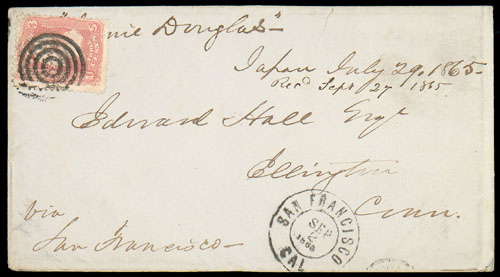 "Annie Douglas"
Japan July 29. 1865.
Recd Sept 27 1865
Edward Hall Esqr
Ellington
Conn.
via
San Francisco
SAN FRANCISCO
SEP
2
1865
CAL